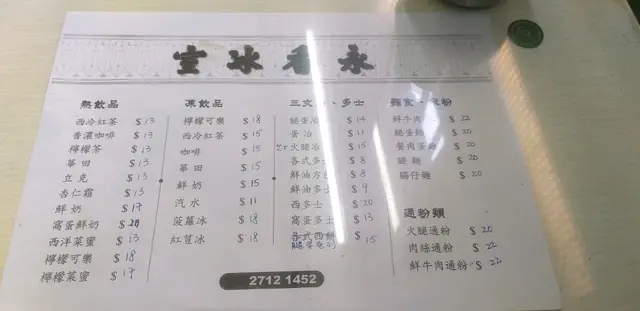 室冰香永
熱飲品
西冷紅茶 $13
香濃咖啡 $13
檸檬茶 $13
華田 $13
立克 $13
杏仁霜 $13
鮮奶 $17
窩蛋鮮奶 $20
西洋菜蜜 $13
檸檬可樂 $18
檸檬菜蜜 $17
凍飲品
檸檬可樂 $18
西冷紅茶 $15
咖啡 $15
華田 $15
鮮奶 $15
汽水 $11
菠蘿冰 $18
紅荳冰 $18
三文治、多士
腿蛋治 $14
蛋治 $11
火腿治 $15
各式多士 $8
鮮油方包 $8
鮮油多士 $9
西多士 $20
窩蛋多士 $13
各式西餅 $15
麵食、米粉
鮮牛肉 $22
腿蛋麵 $20
餐肉蛋麵 $20
腿麵 $20
腸仔麵 $20
通粉類
火腿通粉 $20
肉絲通粉 $22
鮮牛肉通粉 $22
2712 1452